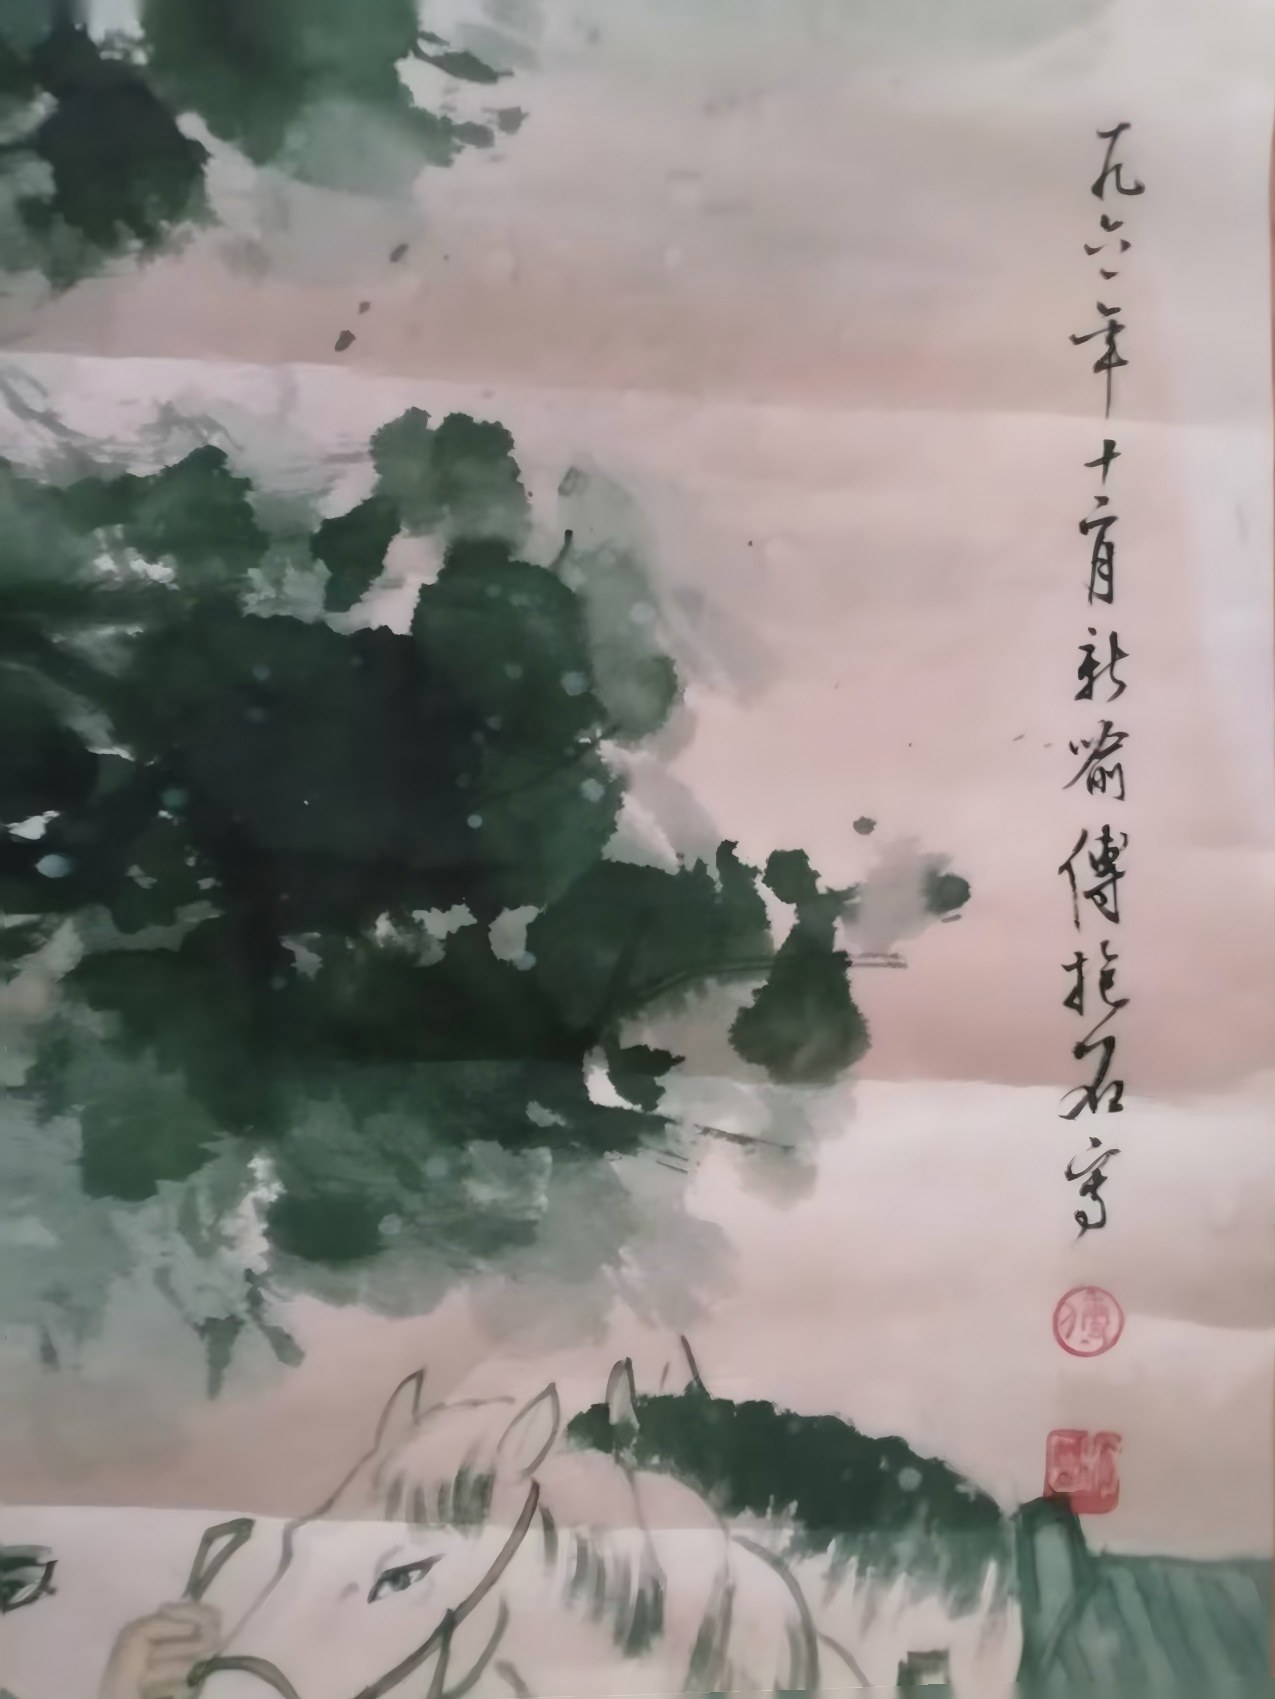 一九六一年十二月新喻傅抱石寫
傅